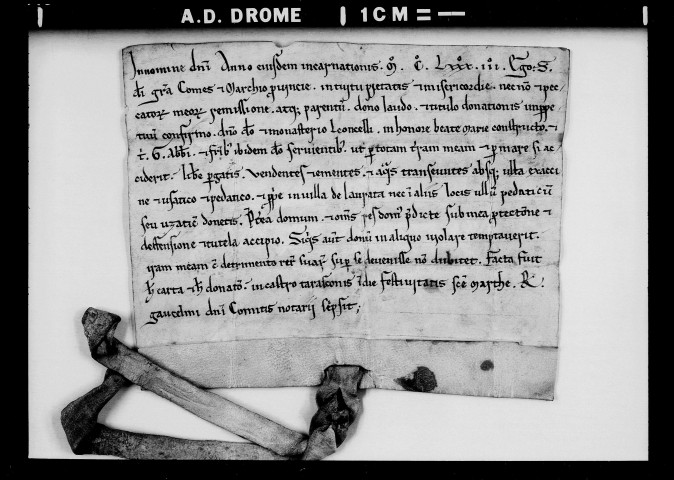 A.D. DROME 1CM =
Innomine dñi Anno eiusdem incarnationis. M. C. Lxxx. iii. Ego. S.
di gr̃a Comes & Marchio puincie. intuitu pietatis & misericordie. nec nõ & pec
catoꝝ meoꝝ remissione. atq; parentũ. dono laudo. & titulo donationis inppe
tuũ confirmo. dño do & monasterio Leoncelli. in honore beate Marie constructo. &
t. G. Abbi. & fr̃ib ibidem do seruientib. ut p totam t̃ram meam & p mare si ac
ciderit. libe pgatis. vendentes & ementes. & aq̃s transeuntes absq; ulla exacci
ne & usatico & pedatico. & ppe in uilla de laurata nec ĩ aliis locis ullũ pedaticũ
seu uzaticũ donetis. Pt̃ea domum. & om̃s res dom' p̃dicte sub mea ptectõne &
deffensione & tutela accipio. Siq̃s aut donũ in aliquo uiolare temptauerit.
iram meam c̃ detrimento rer̃ suaꝝ sup se deuenisse nõ dubitet. Facta fuit
h carta & h donatõ. in castro tarasconis ĩ die festiuitatis sc̃e Marthe. R.
gaucelmi dñi Comitis notarii sc̃psit;